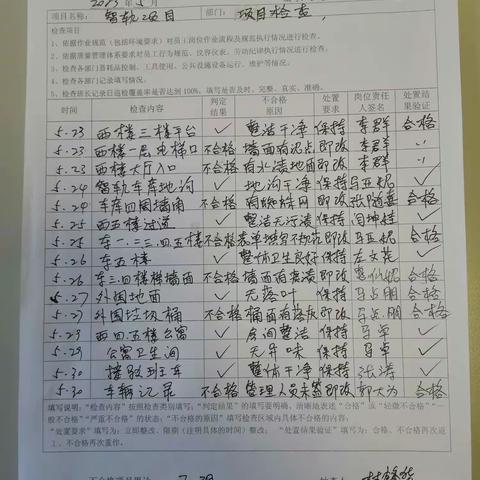 2023年5月
项目名称: 智轨项目 部门: 项目检查
检查项目
1、依据作业规范（包括环境要求）对员工岗位作业流程及规范执行情况进行检查。
2、依据质量管理体系要求对员工行为规范、仪容仪表、劳动纪律执行情况进行检查；
3、检查各部门器耗品控制、工具使用、公共设施设备运行、维护等情况。
4、检查各部门记录填写情况。
5、检查班长记录日巡检覆盖率是否达到100%，填写是否及时、完整、真实、准确。
时间 检查内容 判定结果 不合格原因 处置要求 岗位责任人签名 处置结果验证
5.23 西楼三楼平台 ✓ 整洁干净 保持 李群 合格
5.23 西楼一层电梯口 不合格 墙面有泥点 即改 李群 〃
5.23 西楼大厅入口 不合格 有水渍地面 即改 李群 〃
5.24 智轨车库地沟 ✓ 地沟干净 保持 马亚妮 ✓
5.24 车库四周墙角 不合格 有蜘蛛网 即改 张随喜 合格
5.25 西五楼过道 ✓ 整洁无污渍 保持 闫坤娃 ✓
5.25 车一.二.三.四.五楼 不合格 表单填写不规范 即改 马亚妮 合格
5.26 车五楼 ✓ 整体卫生良好 保持 左文英 ✓
5.26 车三.四楼梯墙面 不合格 墙面有来渍 即改 合格
5.27 外围地面 ✓ 无落叶 保持 马占朋 ✓
5.27 外围垃圾桶 不合格 桶面有落灰 即改 马占朋 合格
5.29 西四.五楼公寓 ✓ 房间整洁 保持 马卓 ✓
5.29 公寓卫生间 ✓ 无异味 保持 马卓 ✓
5.30 接驳班车 ✓ 整体干净 保持 张涛 ✓
5.30 车辆记录 不合格 管理人员未签 即改 郭大为 合格
填写说明："检查内容"按照检查类别填写；"判定结果"的填写要明确、清晰地表述"合格"或"轻微不合格""一
般不合格""严重不合格"的状态；"不合格的原因"填写检查区域内具体不合格的内容；
"处置要求"填写为：立即整改、限期（注明具体的时间）整改； "处置结果验证"填写为：合格、不合格再次返
工、不合格再次重作。